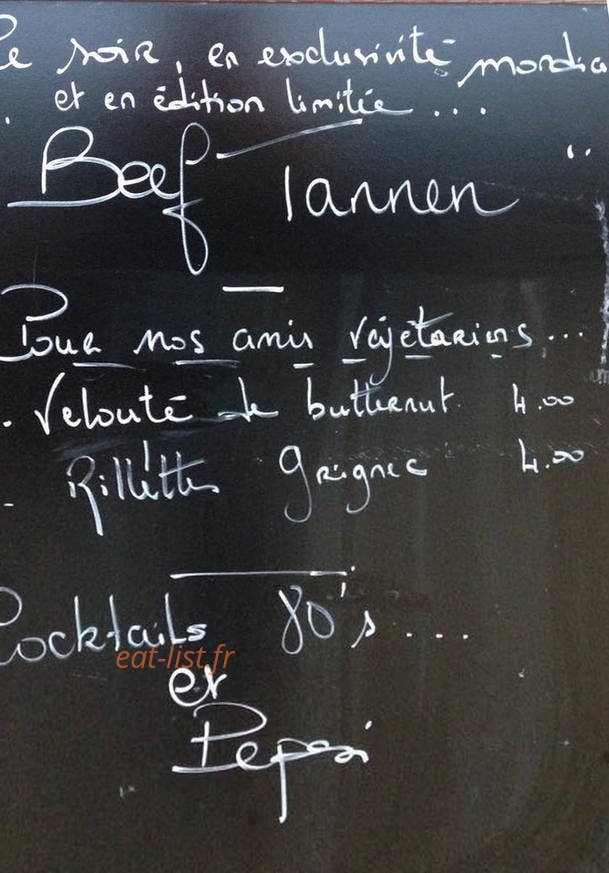 Ce soir, en exclusivité mondia
et en édition limitée...
Beef Tannen
Pour nos amis végétariens...
. Velouté de butternut 4.00
- Rillettes Grignec 4.00
Cocktails 80's....
eat-list.fr
et
Pepsi